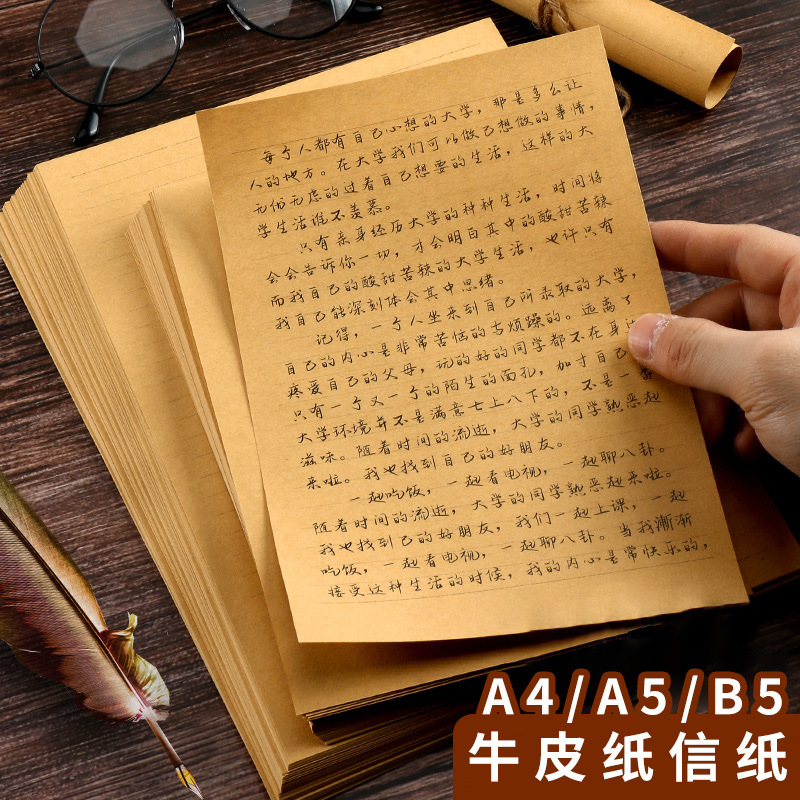 每个人都有自己心想的大学，那是多么让
人的地方。在大学我们可以做己想做的事情，
无忧无虑的过着自己想要的生活，这样的大
学生活谁不羡慕。
只有亲身经历大学的种种生活，时间将
会会告诉你一切，才会明白其中的酸甜苦辣
而我自己的酸甜苦辣的大学生活，也许只有
我自己能深刻体会其中思绪。
记得，一个人坐来到自己所录取的大学，
自己的内心是非常苦恼的与烦躁的。远离了
疼爱自己的父母，玩的好的同学都不在身
只有一个又一个的陌生的面孔，加寸自己
大学环境并不是满意七上八下的，不是一番
滋味。随着时间的流逝，大学的同学熟悉起
来啦。我也找到自己的好朋友。
一起吃饭，一起看电视，一起聊八卦。
随着时间的流逝，大学的同学熟悉起来啦。
我也找到己的好朋友，我们一起上课，一起
吃饭，一起看电视，一起聊八卦。当我渐渐
接受这种生活的时候，我的内心是常快乐的，
A4/A5/B5
牛皮纸信纸